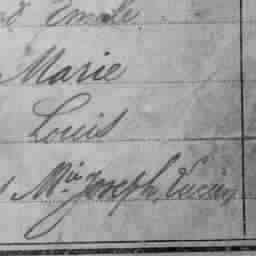 Emile
Marie
Louis
Mie Joseph Lucien